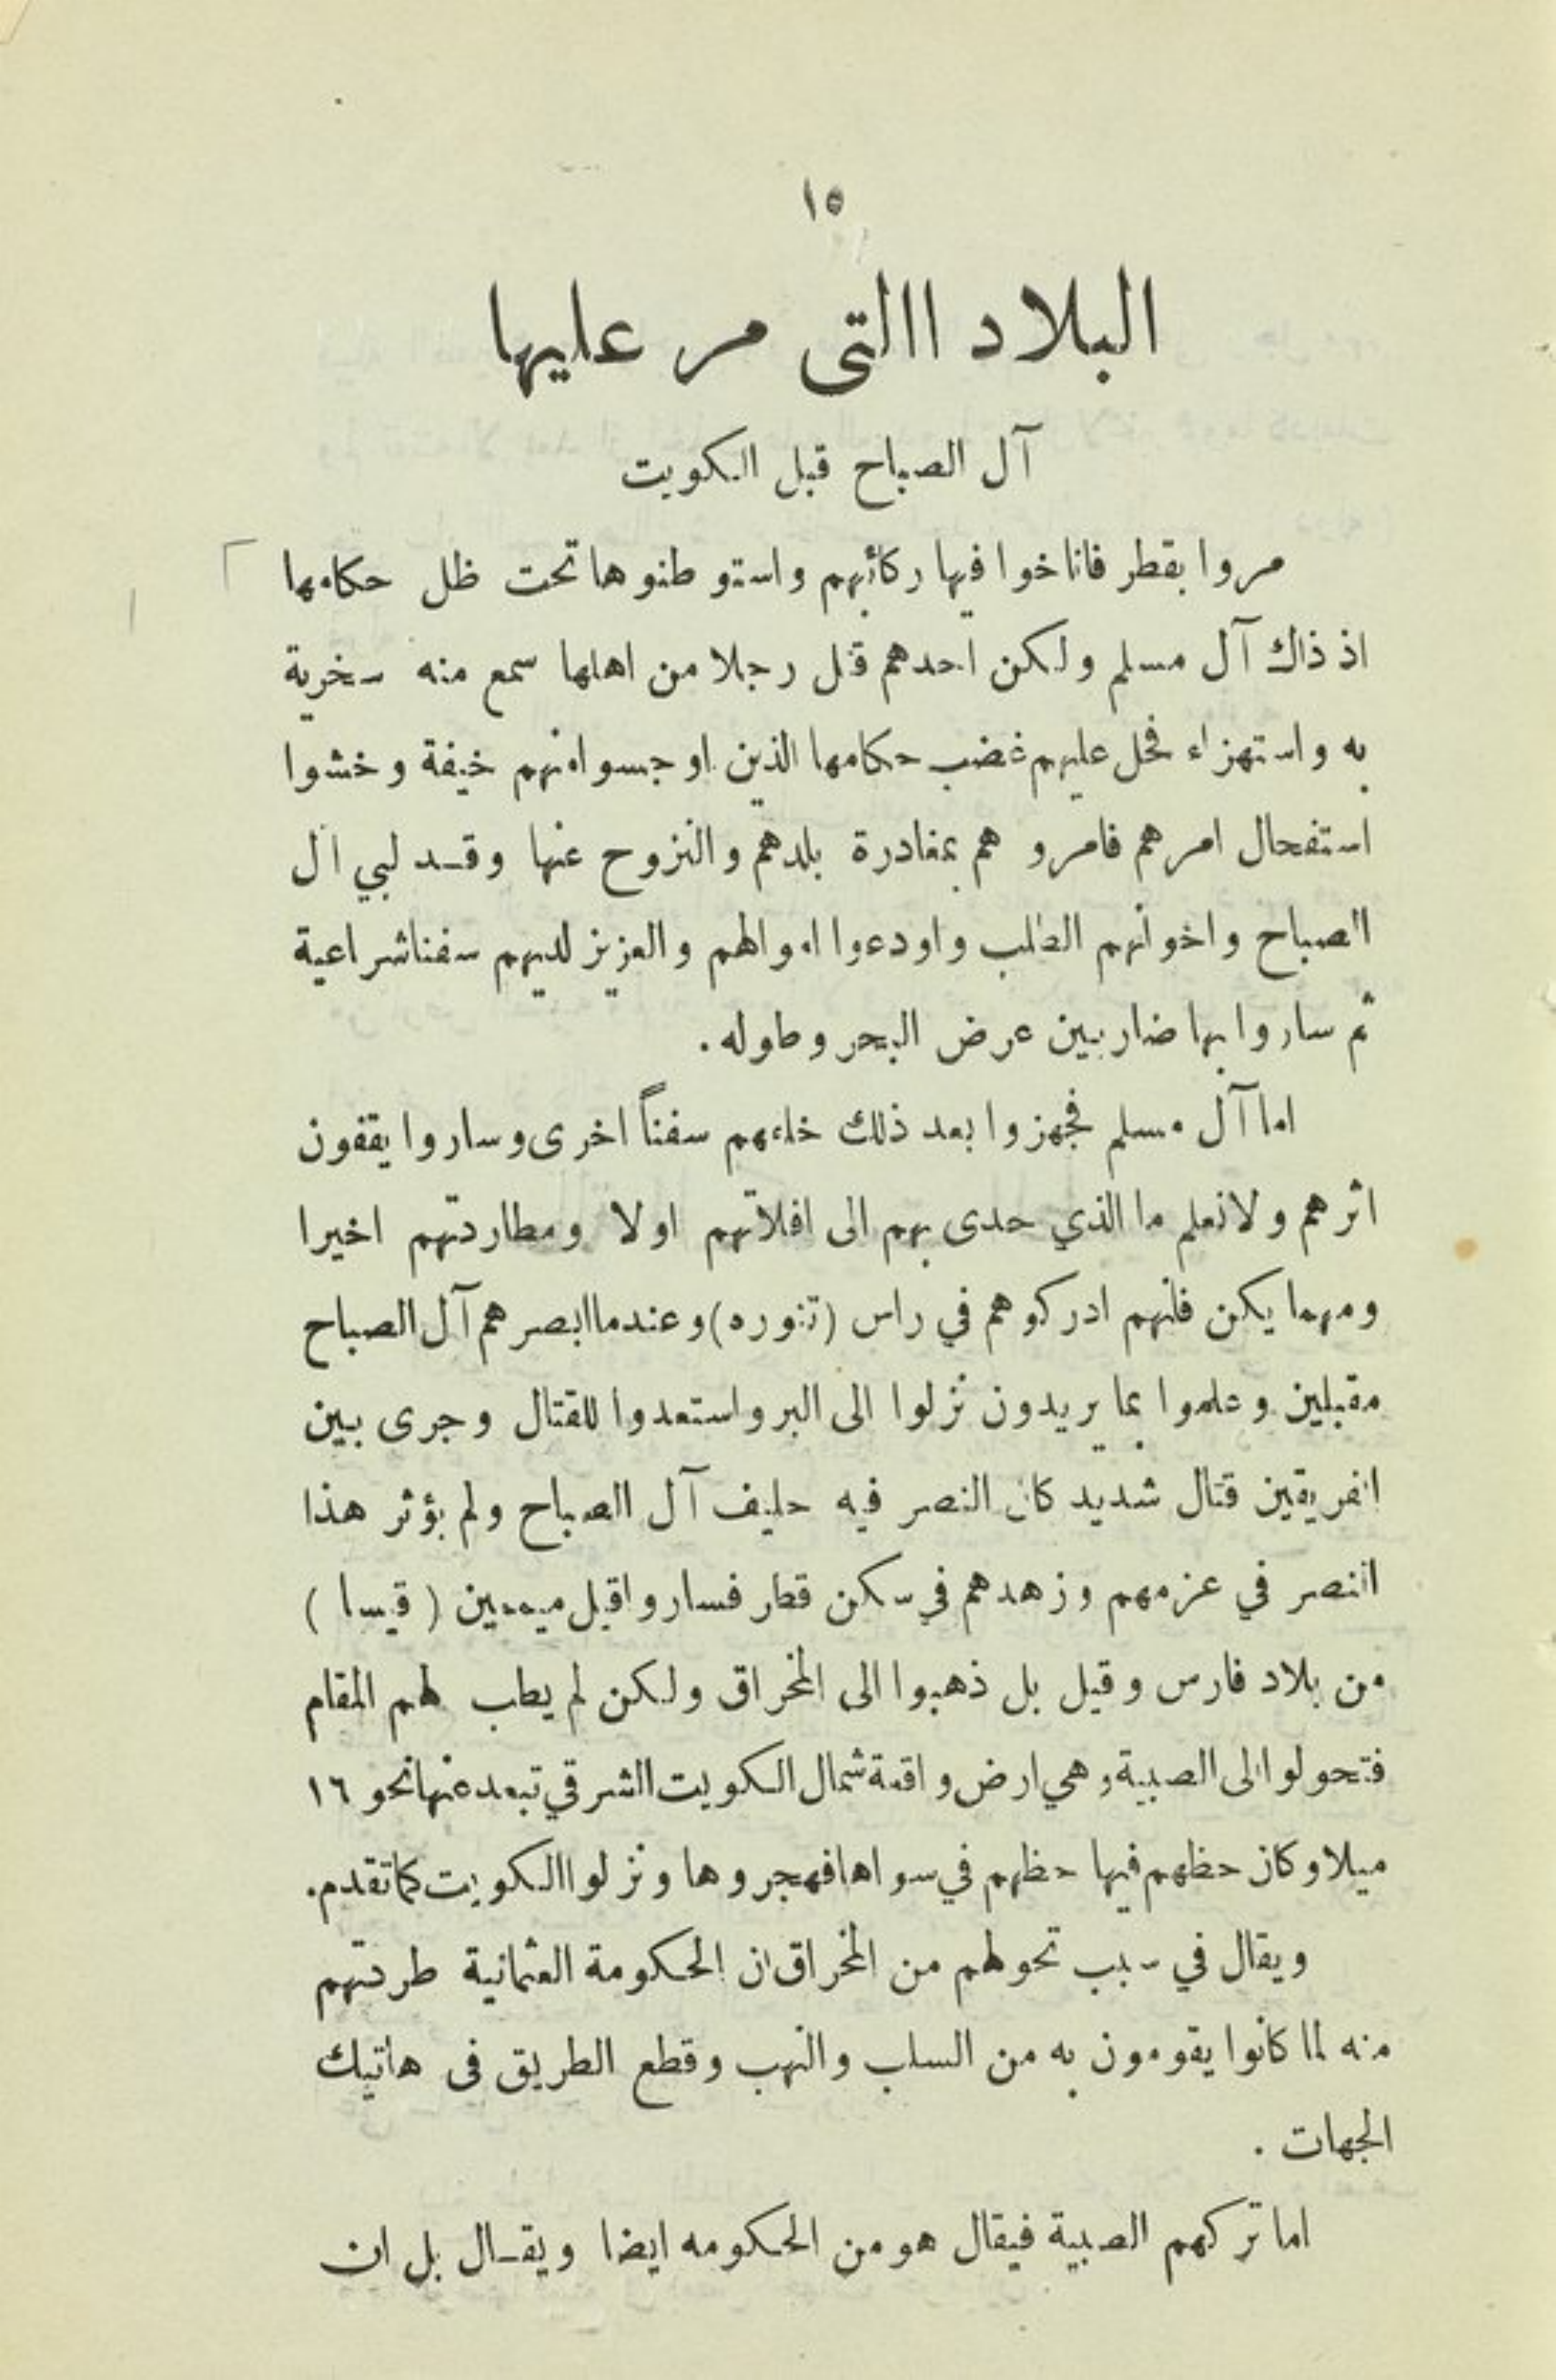 ١٥
البلاد االتى مر عليها
آل الصباح قبل الكويت
مروا بقطر فاناخوا فيها ركائبهم واستوطنوها تحت ظل حكامها
اذ ذاك آل مسلم ولكن احدهم قتل رجلا من اهلها سمع منه سخرية
به واستهزاء فحل عليهم غضب حكامها الذين اوجسوا منهم خيفة وخشوا
استفحال امرهم فامروهم بمغادرة بلدهم والنزوح عنها وقد لبي آل
الصباح واخوانهم الطلب واودعوا اموالهم والعزيز لديهم سفنا شراعية
ثم ساروا بها ضاربين عرض البحر وطوله .
اما آل مسلم فجهزوا بعد ذلك خلفهم سفناً اخرى وساروا يقفون
اثرهم ولا نعلم ما الذي حدى بهم الى افلاتهم اولا ومطاردتهم اخيرا
ومهما يكن فانهم ادركوهم في راس (تنوره) وعندما ابصرهم آل الصباح
مقبلين وعلموا بما يريدون نزلوا الى البر واستعدوا للقتال وجرى بين
الفريقين قتال شديد كان النصر فيه حليف آل الصباح ولم يؤثر هذا
النصر في عزمهم وزهدهم في سكن قطر فساروا قبل ميممين ( قيسا )
من بلاد فارس وقيل بل ذهبوا الى المخراق ولكن لم يطب لهم المقام
فتحولوا الى الصبية وهي ارض واقعة شمال الكويت الشرقي تبعد عنها نحو ١٦
ميلا وكان حظهم فيها حظهم في سواها فهجروها ونزلوا الكويت كما تقدم.
ويقال في سبب تحولهم من المخراق ان الحكومة العثمانية طردتهم
منه لما كانوا يقومون به من السلب والنهب وقطع الطريق فى هاتيك
الجهات .
اما تركهم الصبية فيقال هو من الحكومه ايضا ويقال بل ان